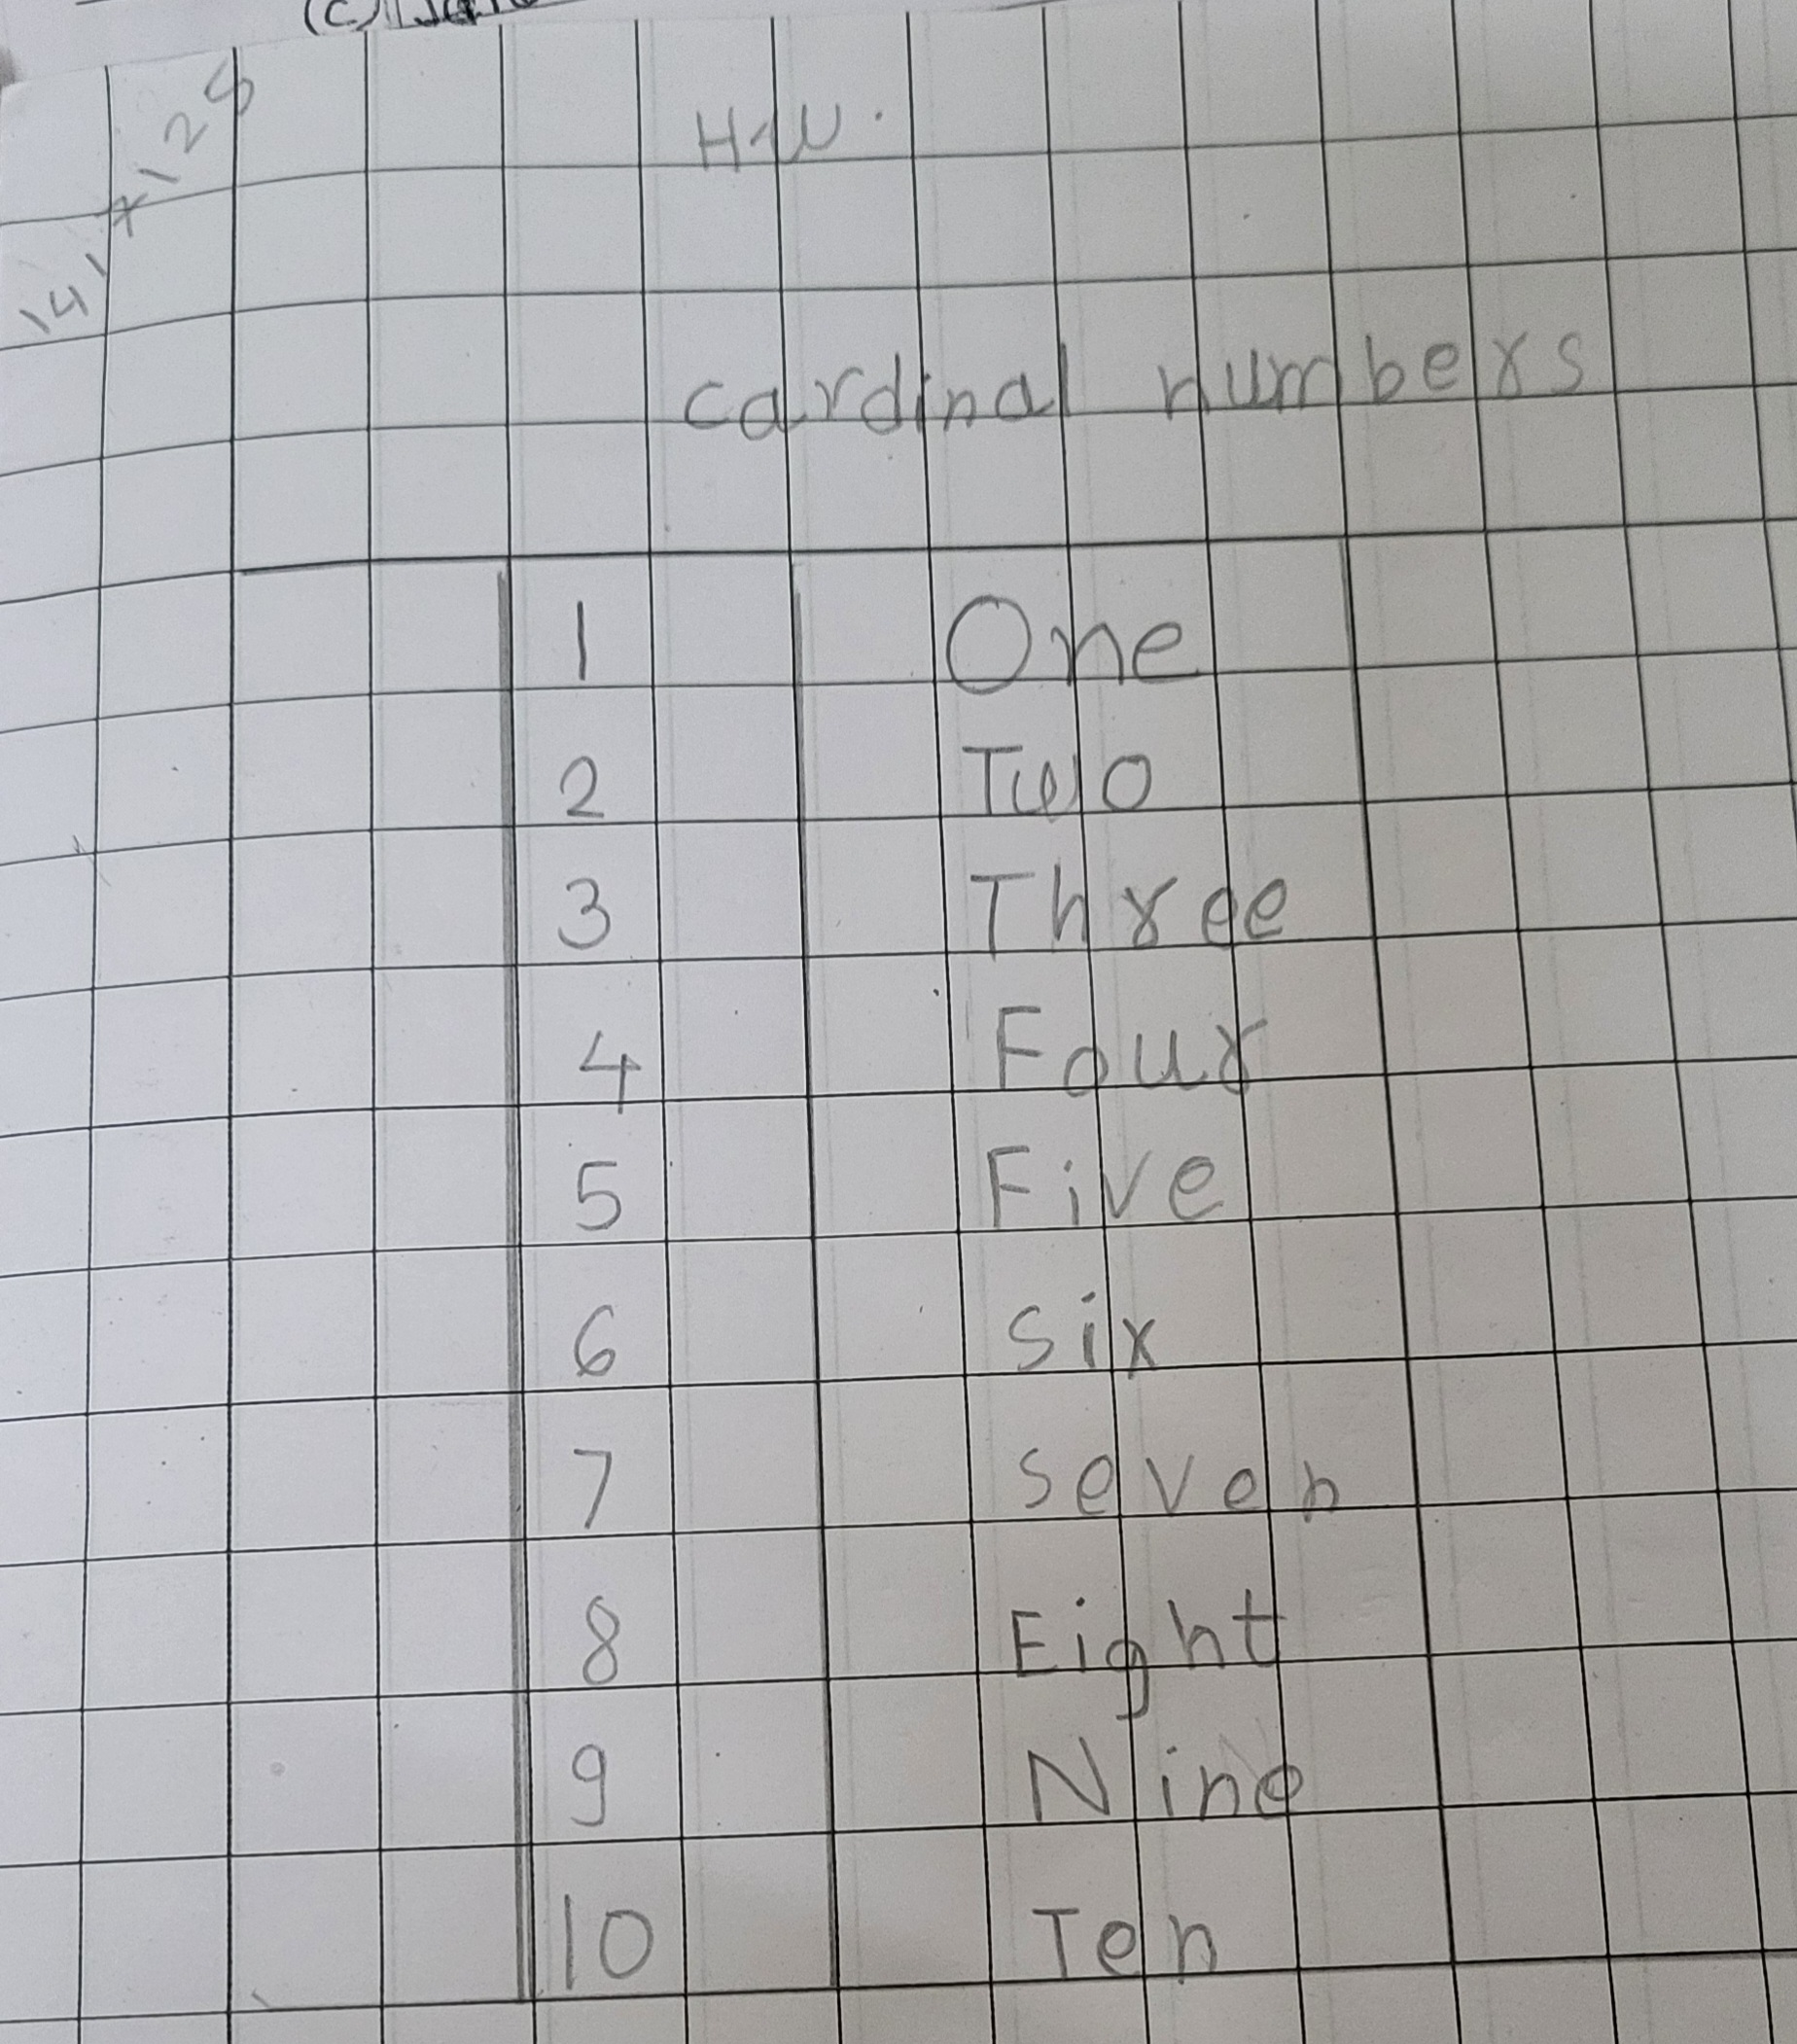 H.W.
cardinal numbers
1 One
2 Two
3 Three
4 Four
5 Five
6 six
7 seven
8 Eight
9 Nine
10 Ten